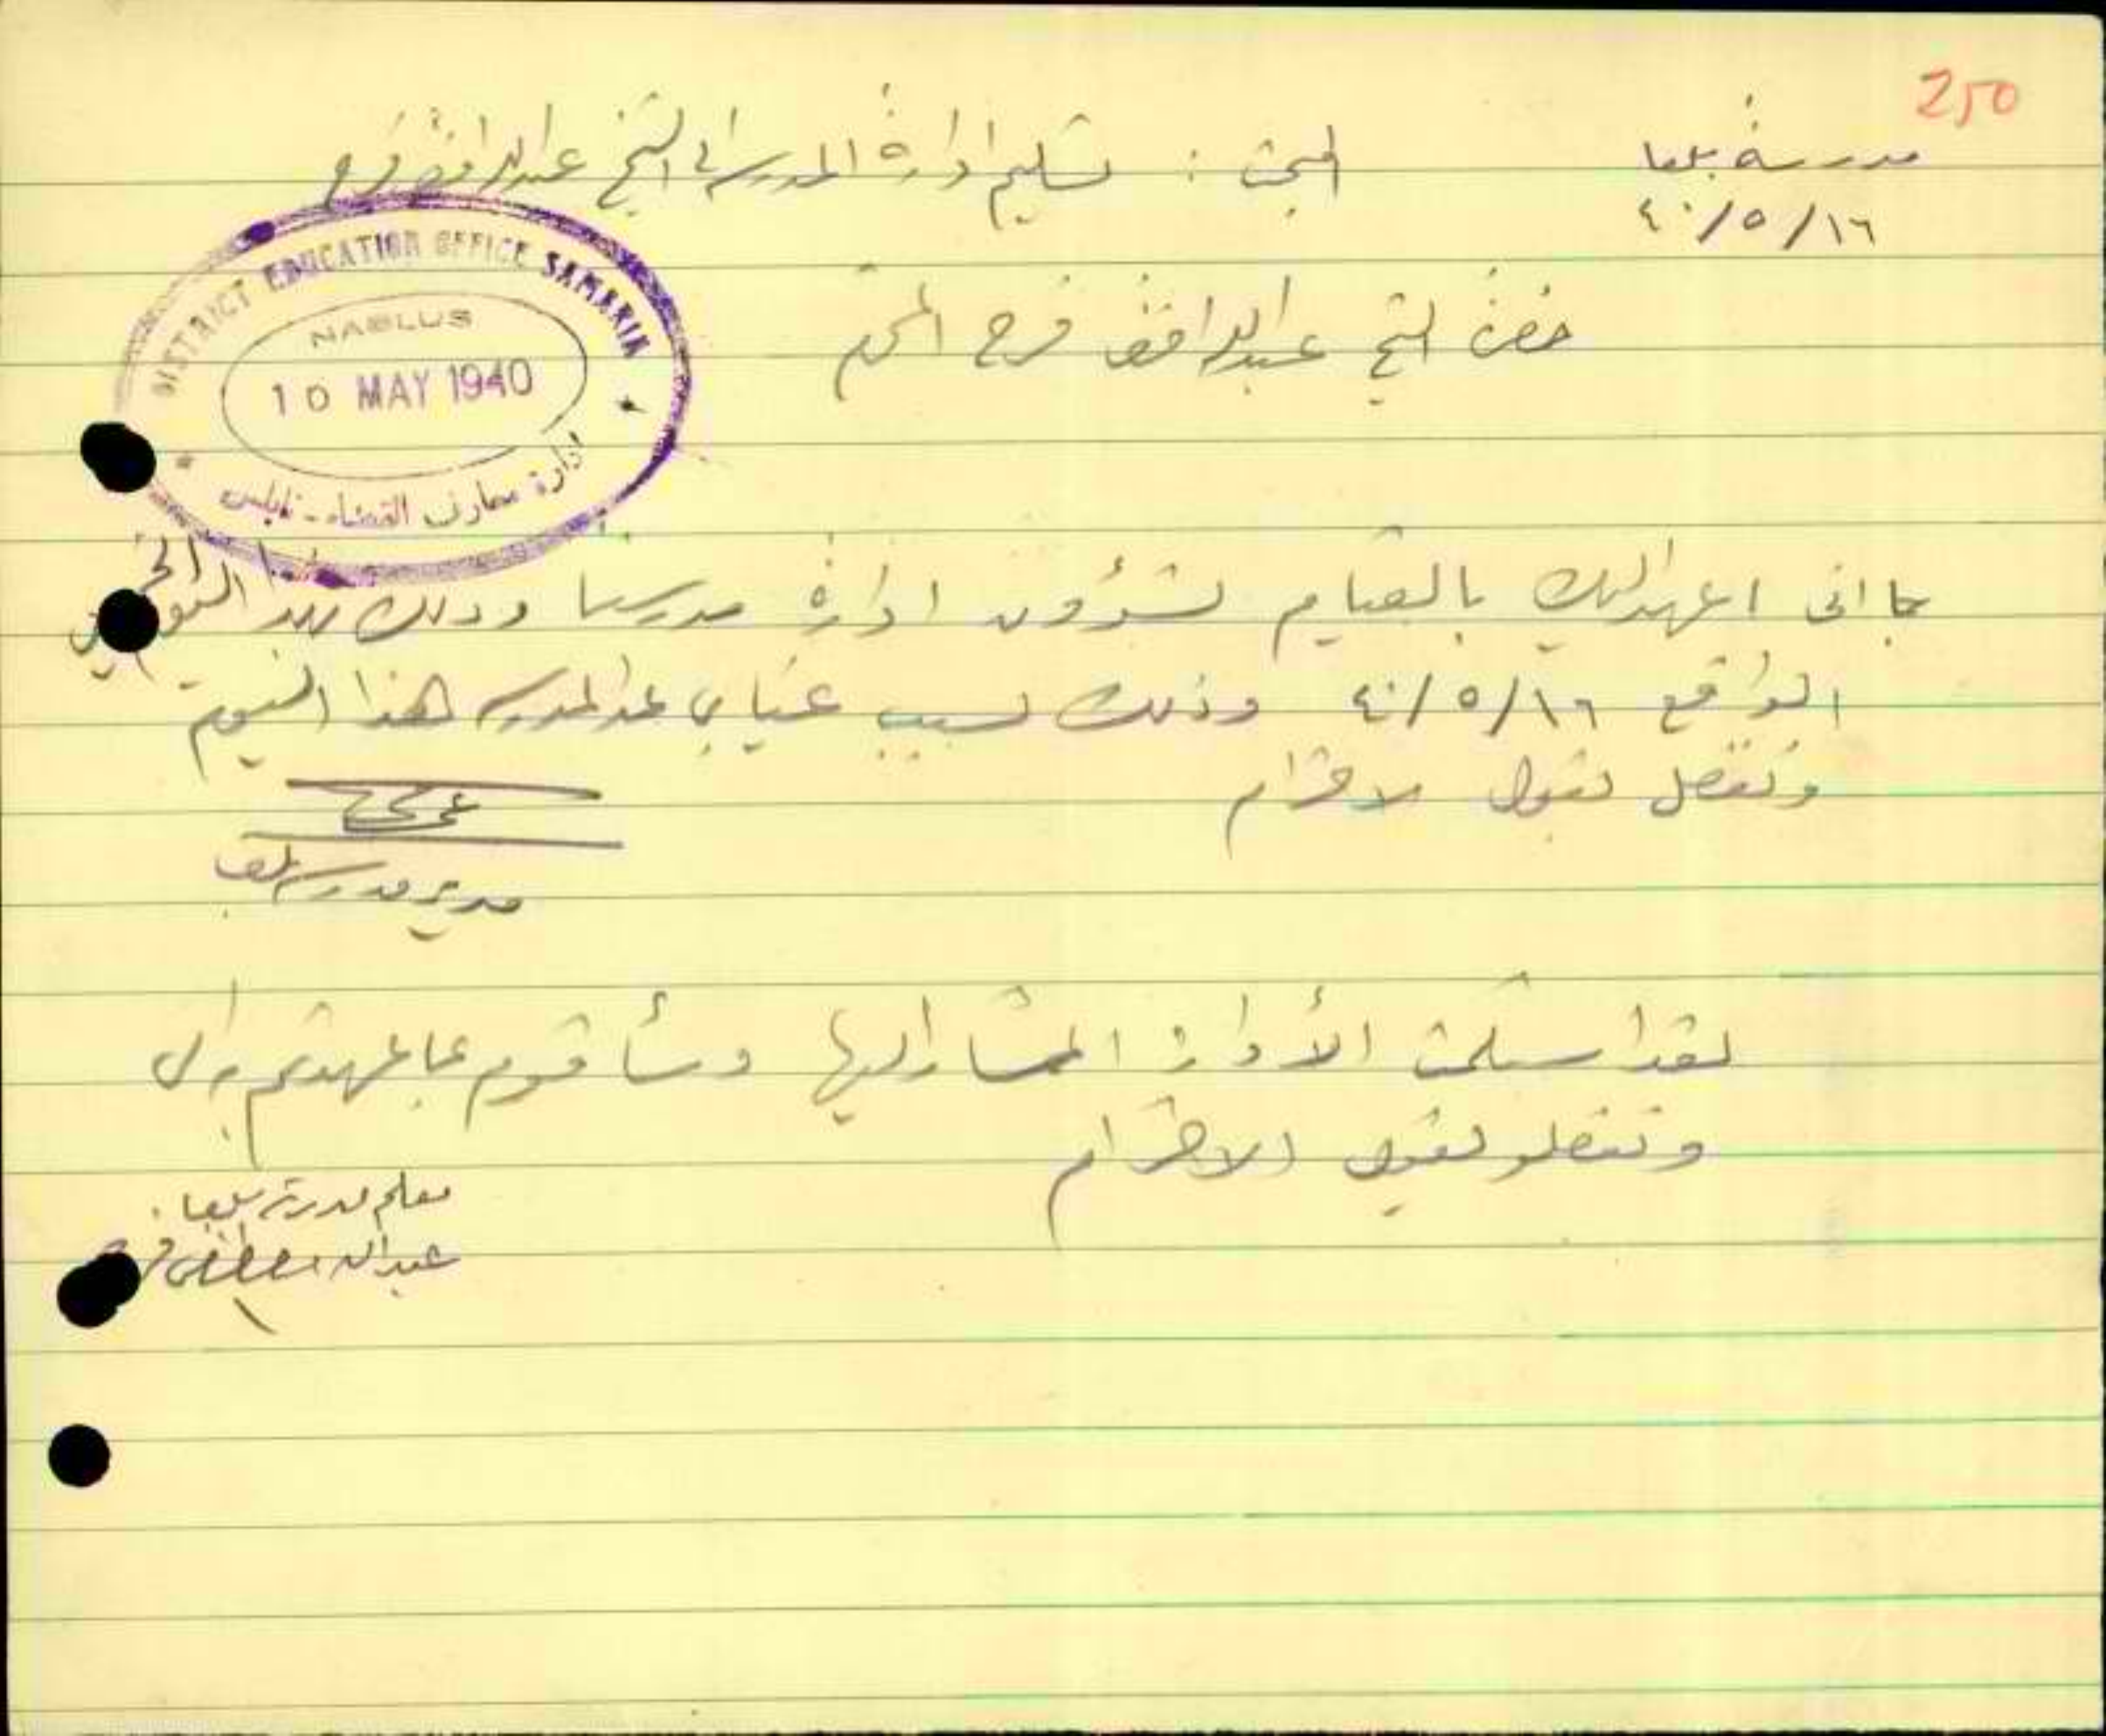 250
مدرسة بلعا
١٦/٥/٤٠
البحث : تسليم ادارة المدرسة الى الشيخ عبد الحافظ فرح
DISTRICT EDUCATION OFFICE SAMARIA
NABLUS
10 MAY 1940
ادارة معارف القضاء - نابلس
حضرة الشيخ عبد الحافظ فرح المحترم
بما اني اعهد اليك بالقيام بشؤون ادارة مدرستنا وذلك بهذا اليوم الخميس
الواقع ١٦/٥/٤٠ وذلك بسبب غيابي عن المدرسة هذا اليوم
وتفضل بقبول الاحترام
مدير مدرسة بلعا
لقد استلمت الأدارة المشار اليها وسأقوم بما عهدتم به الي
وتفضلو بقبول الاحترام
معلم مدرسة بلعا
عبد الحافظ فرح